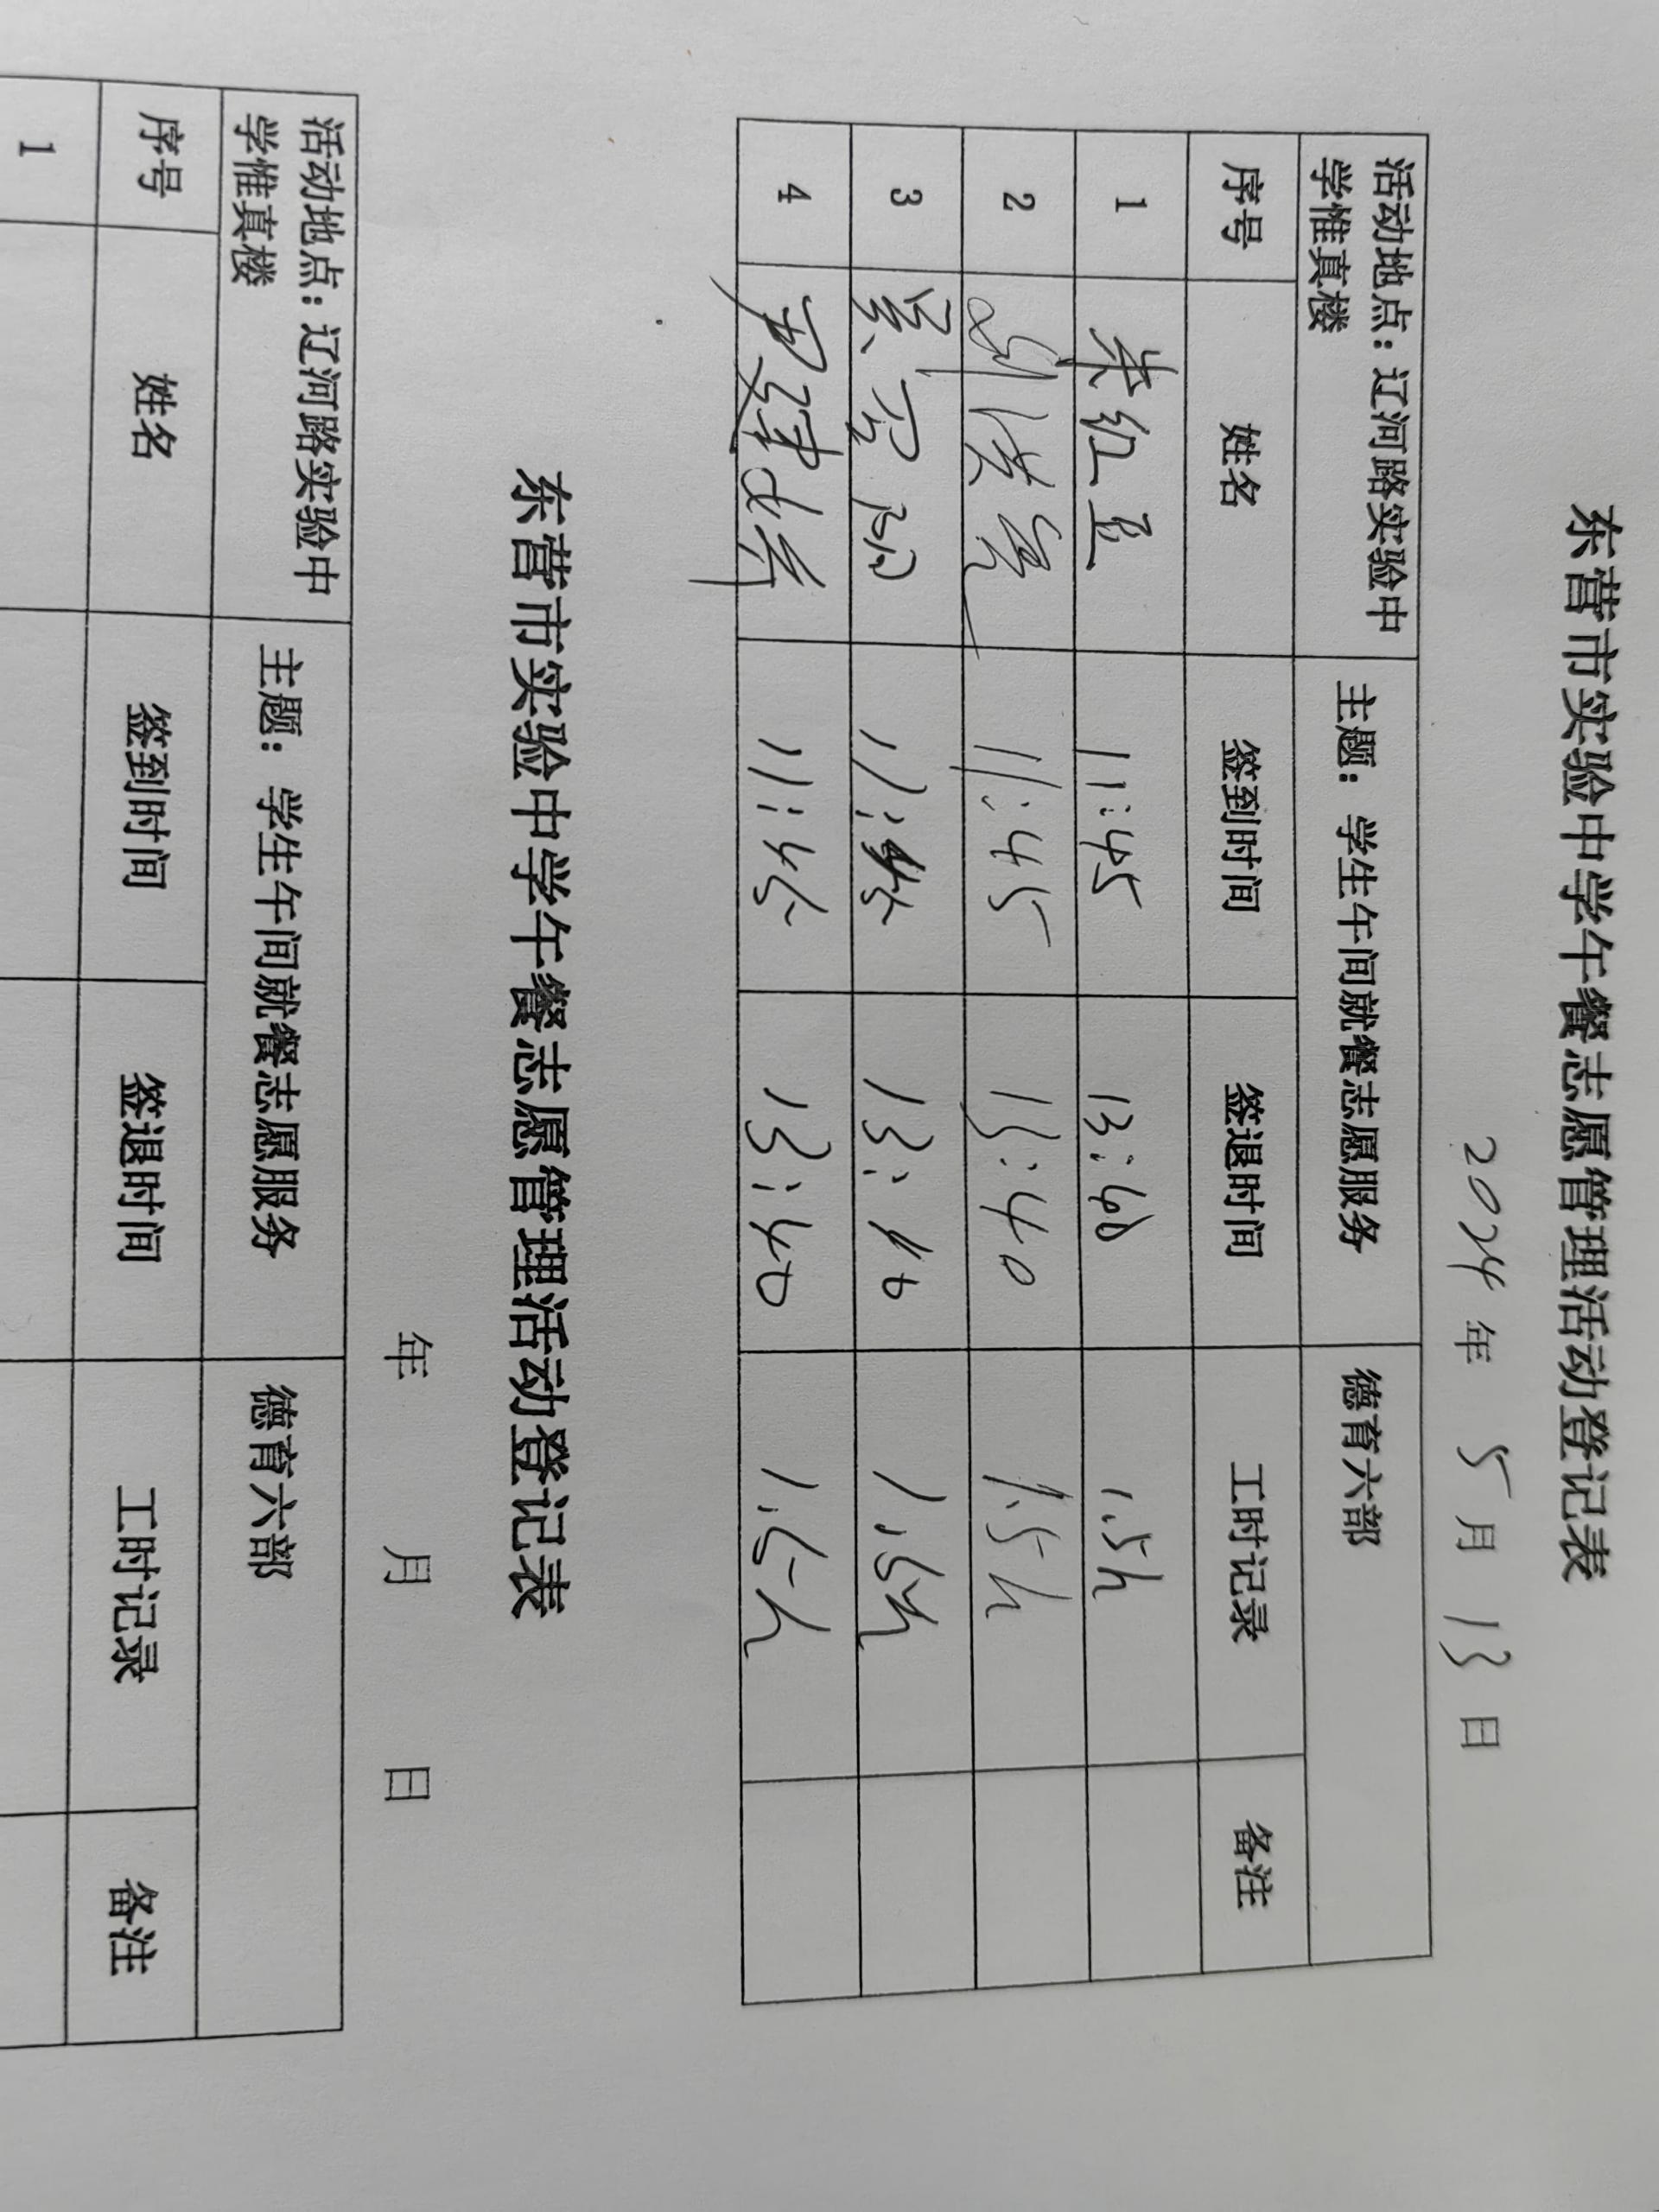 东营市实验中学午餐志愿管理活动登记表
2024年 5月 13日
活动地点：辽河路实验中 主题：学生午间就餐志愿服务 德育六部
学惟真楼
序号 姓名 签到时间 签退时间 工时记录 备注
1 11:45 13:40 1.5h
2 11:45 13:40 1.5h
3 11:45 13:40 1.5h
4 11:45 13:40 1.5h
东营市实验中学午餐志愿管理活动登记表
年 月 日
活动地点：辽河路实验中 主题：学生午间就餐志愿服务 德育六部
学惟真楼
序号 姓名 签到时间 签退时间 工时记录 备注
1